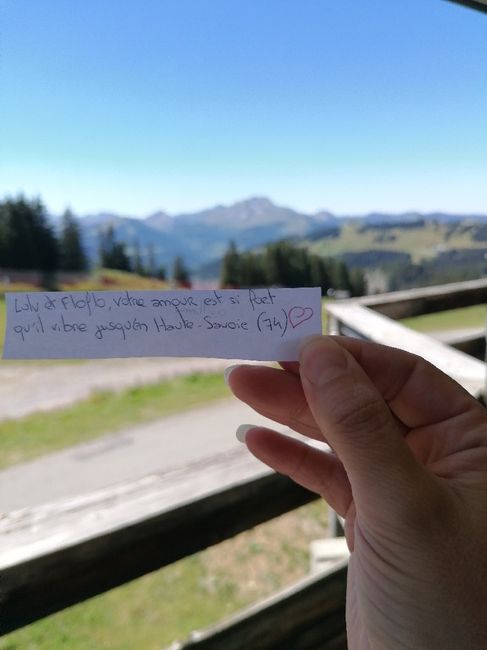 Lulu & Floflo, votre amour est si fort
qu'il vibre jusqu'en Haute-Savoie (74)